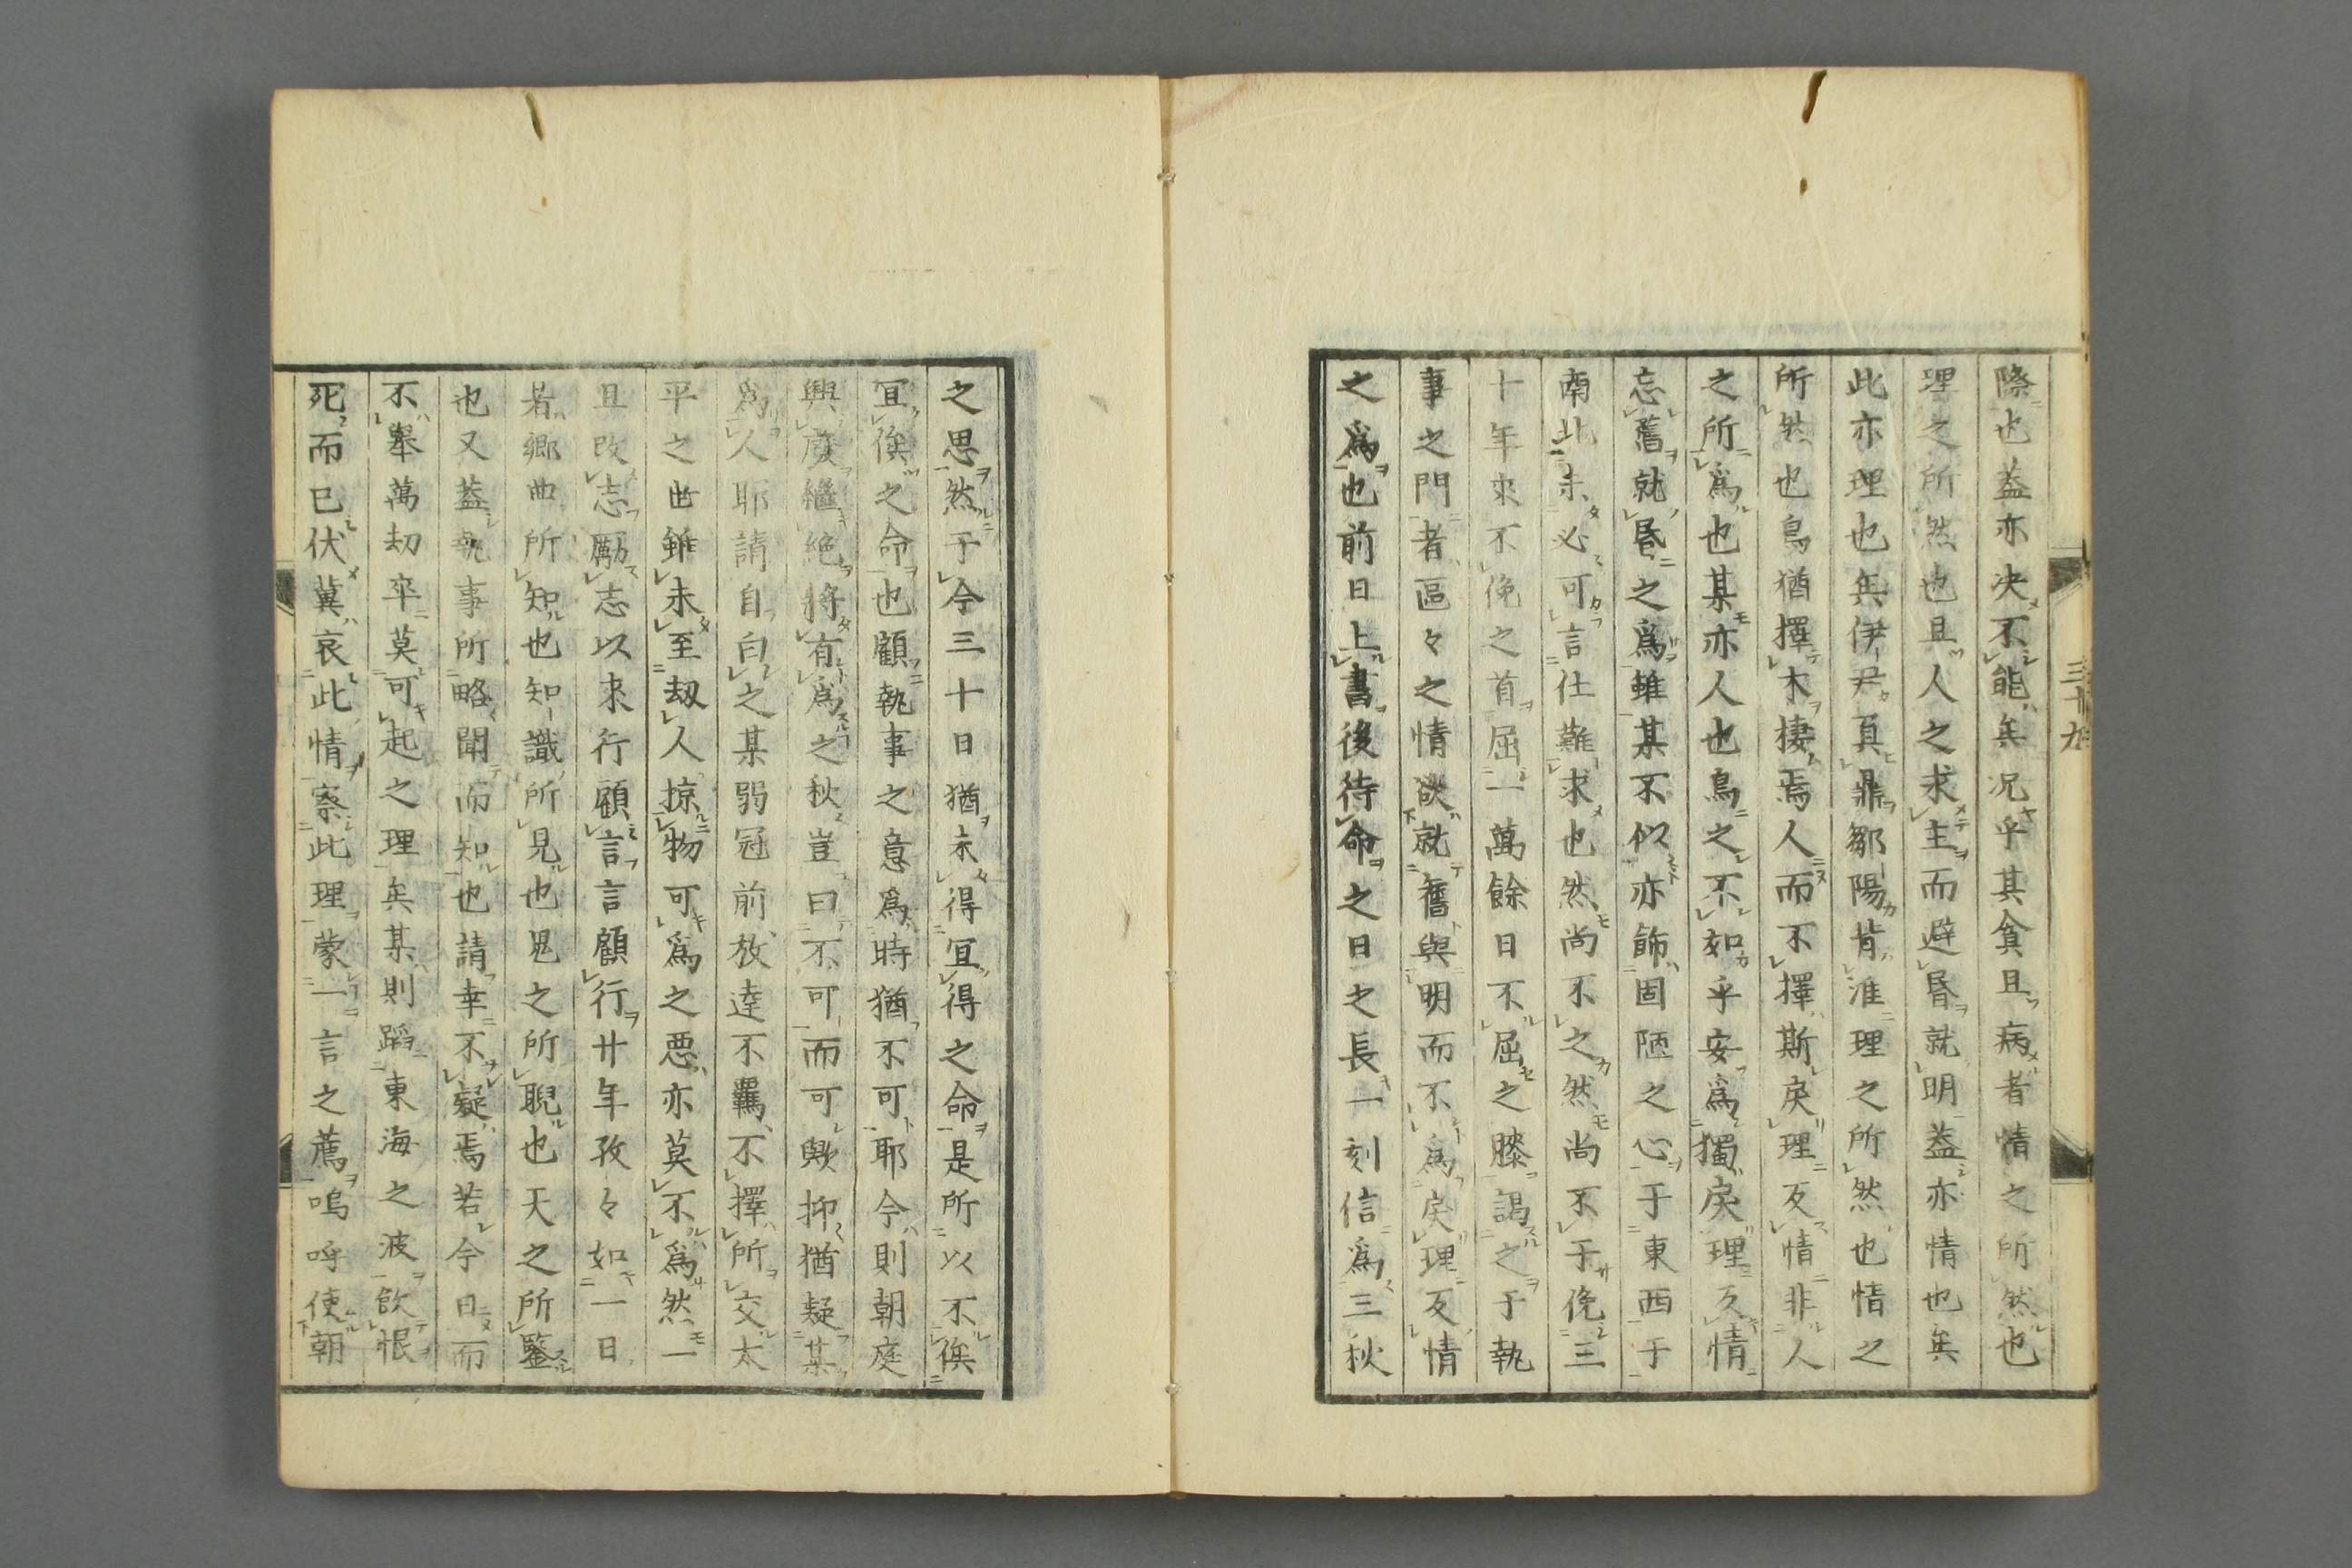 際也蓋亦决不能矣况乎其貪且病者情之所然也
理之所然也且人之求主而避昬就明蓋亦情也矣
此亦理也矣伊尹負鼎鄒陽背淮理之所然也情之
所然也鳥猶擇木棲焉人而不擇斯戾理反情非人
之所爲也某亦人也鳥之不如乎安爲獨戾理反情
忘舊就昬之爲雖某不似亦飾固陋之心于東西于
南北未必可言仕難求也然尚不之然尚不于俛三
十年來不俛之首屈一萬餘日不屈之膝謁之于執
事之門者區々之情欲就舊與明而不爲戾理反情
之爲也前日上書後待命之日之長一刻信爲三秋
三十九
之思然于今三十日猶未得冝得之命是所以不俟
冝俟之命也顧執事之意爲時猶不可耶今則朝庭
興廢繼絶將有爲之秋豈曰不可而可歟抑猶疑某
爲人耶請自白之某弱冠前放達不羈不擇所交太
平之世雖未至刼人掠物可爲之悪亦莫不爲然一
且改志勵志以來行顧言言顧行廿年孜々如一日
若郷曲所知也知識所見也鬼之所睨也天之所鑒
也又蓋執事所略聞而知也請幸不疑焉若今日而
不舉萬刧卒莫可起之理矣某則蹈東海之波飲恨
死而已伏冀哀此情察此理蒙一言之薦嗚呼使朝